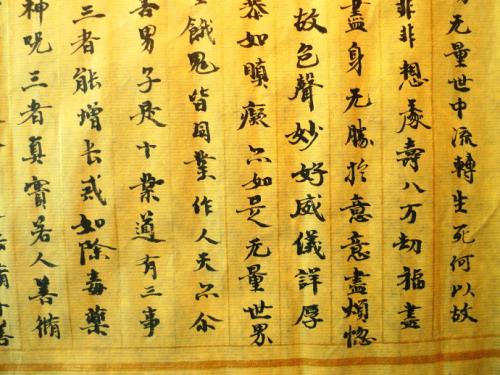 无量世中流轉生死何以故
非非想處壽八万劫福盡
盡身无勝於意意盡煩惱
故色聲妙好威儀詳厚
恭如瞋癡亦如是无量世界
餓鬼皆因業作人天亦尒
善男子是十業道有三事
三者能增长戒如除毒藥
神呪三者真實若人善脩